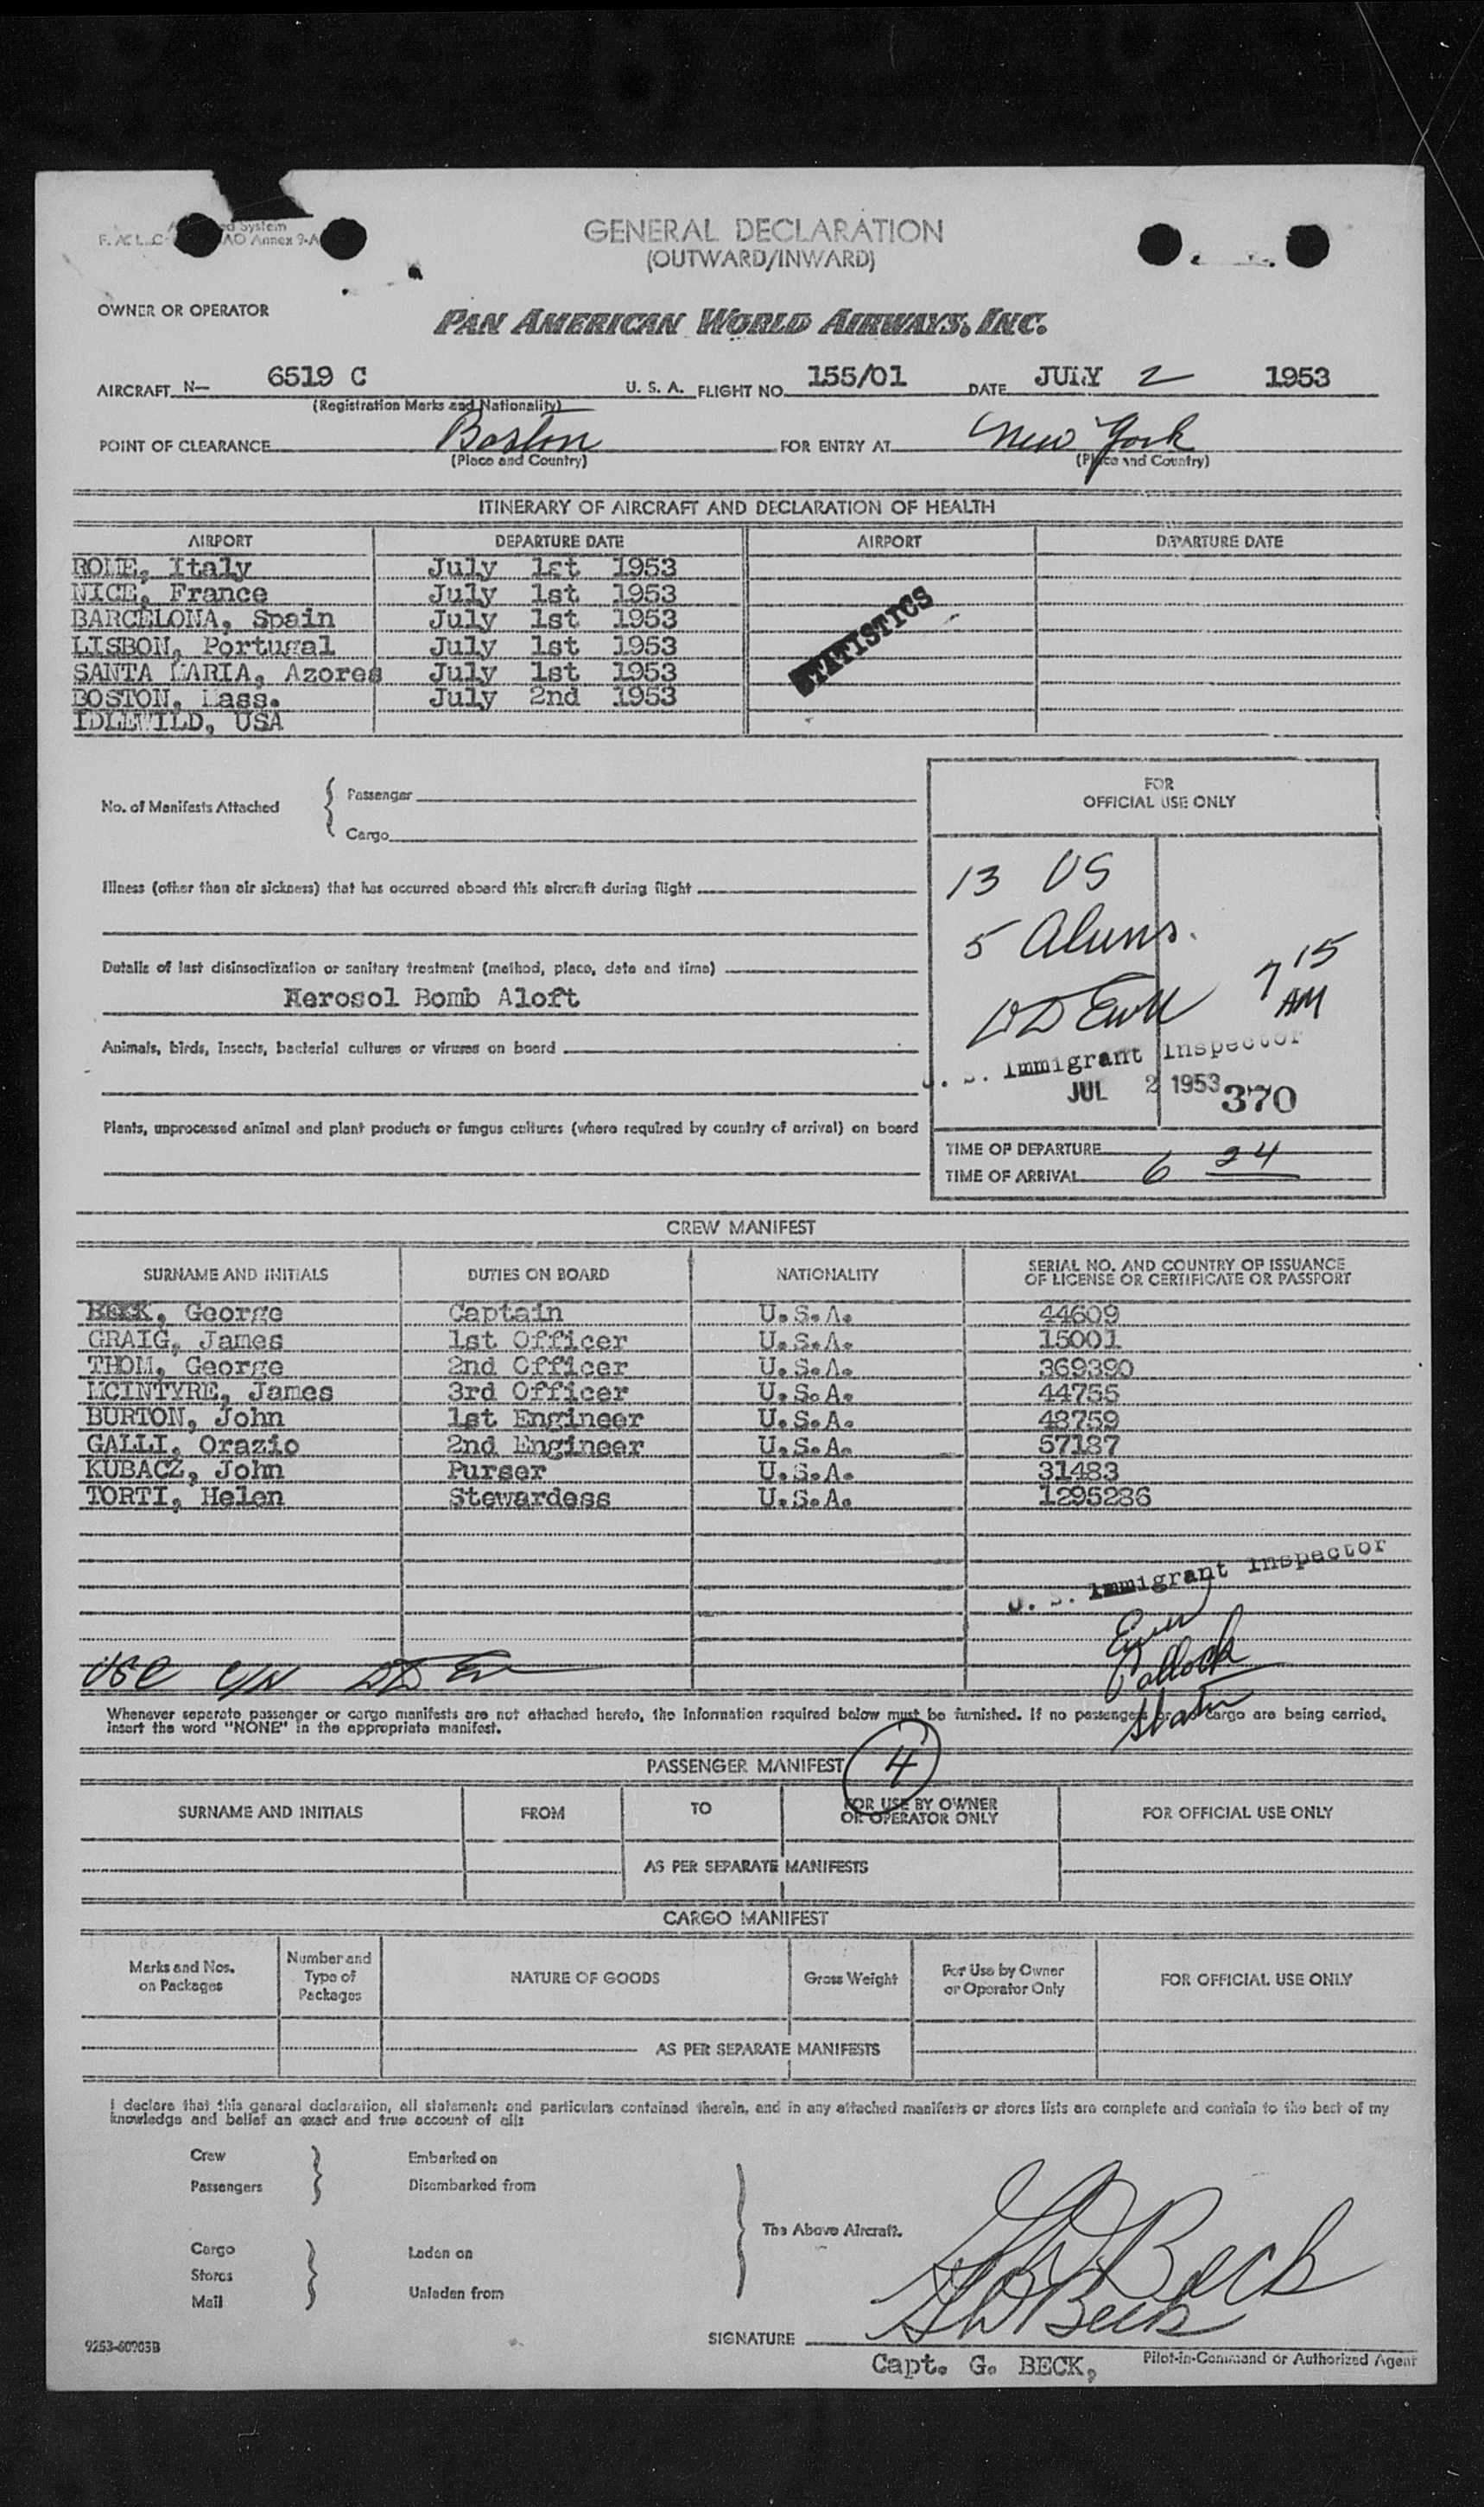 GENERAL DECLARATION
(OUTWARD/INWARD)
OWNER OR OPERATOR
PAN AMERICAN WORLD AIRWAYS, INC.
AIRCRAFT N- 6519 C U. S. A. FLIGHT NO. 155/01 DATE JULY 2 1953
(Registration Marks and Nationality)
POINT OF CLEARANCE Boston FOR ENTRY AT New York
(Place and Country) (Place and Country)
ITINERARY OF AIRCRAFT AND DECLARATION OF HEALTH
AIRPORT DEPARTURE DATE AIRPORT DEPARTURE DATE
ROME, Italy July 1st 1953
NICE, France July 1st 1953
BARCELONA, Spain July 1st 1953
LISBON, Portugal July 1st 1953
SANTA MARIA, Azores July 1st 1953
BOSTON, Mass. July 2nd 1953
IDLEWILD, USA
STATISTICS
No. of Manifests Attached { Passenger
Cargo
Illness (other than air sickness) that has occurred aboard this aircraft during flight
Details of last disinsectization or sanitary treatment (method, place, date and time)
Aerosol Bomb Aloft
Animals, birds, insects, bacterial cultures or viruses on board
Plants, unprocessed animal and plant products or fungus cultures (where required by country of arrival) on board
FOR
OFFICIAL USE ONLY
13 US
5 Aliens.
7 15
AM
U. S. Immigrant Inspector
JUL 2 1953 370
TIME OF DEPARTURE
TIME OF ARRIVAL 6 24
CREW MANIFEST
SURNAME AND INITIALS DUTIES ON BOARD NATIONALITY SERIAL NO. AND COUNTRY OF ISSUANCE
OF LICENSE OR CERTIFICATE OR PASSPORT
BECK, George Captain U.S.A. 44609
CRAIG, James 1st Officer U.S.A. 15001
THOM, George 2nd Officer U.S.A. 369390
MCINTYRE, James 3rd Officer U.S.A. 44755
BURTON, John 1st Engineer U.S.A. 48759
GALLI, Orazio 2nd Engineer U.S.A. 57187
KUBACZ, John Purser U.S.A. 31483
TORTI, Helen Stewardess U.S.A. 1295286
U. S. Immigrant Inspector
Pollock
USC
Whenever separate passenger or cargo manifests are not attached hereto, the information required below must be furnished. If no passengers or cargo are being carried,
insert the word "NONE" in the appropriate manifest.
PASSENGER MANIFEST 4
SURNAME AND INITIALS FROM TO FOR USE BY OWNER
OR OPERATOR ONLY FOR OFFICIAL USE ONLY
AS PER SEPARATE MANIFESTS
CARGO MANIFEST
Marks and Nos.
on Packages Number and
Type of
Packages NATURE OF GOODS Gross Weight For Use by Owner
or Operator Only FOR OFFICIAL USE ONLY
AS PER SEPARATE MANIFESTS
I declare that this general declaration, all statements and particulars contained therein, and in any attached manifests or stores lists are complete and contain to the best of my
knowledge and belief an exact and true account of all:
Crew Embarked on
Passengers Disembarked from
The Above Aircraft.
Cargo Laden on
Stores
Mail Unladen from
G D Beck
G D Beck
SIGNATURE
Capt. G. BECK, Pilot-in-Command or Authorized Agent
9253-60903B